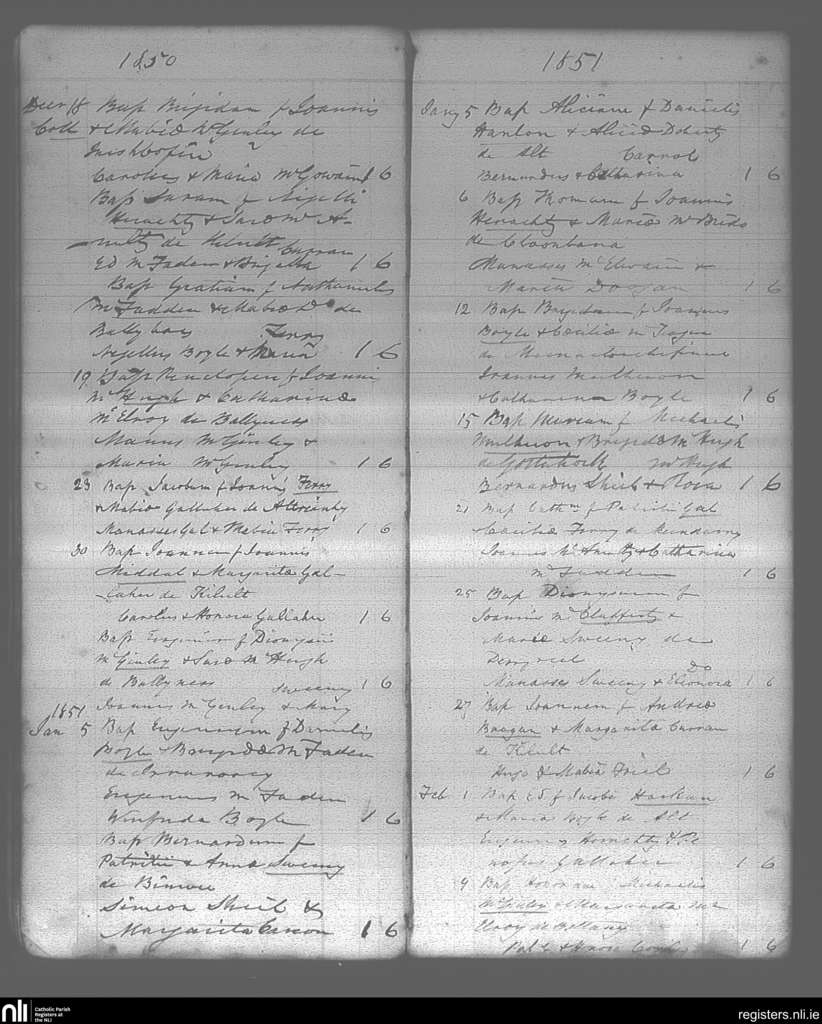 1850
Decr 18 Bap Brigidam f Joannis
Coll & Mabiæ McGinley de
Inishboffin
Carolus & Maria McGowan 1 6
Bap Saram f Nigelli
Heraghty & Saræ McA-
nulty de Kilult Curran
Ed McFaden & Brigetta 1 6
Bap Gratiam f Nathanielis
McFadden & Mabiæ D de
Ballyboes Ferry
Nigellus Boyle & Maria 1 6
19 Bap Penelopen f Joannis
McHugh & Catharinæ
McElroy de Ballyness
Manus McGinley &
Maria McGinley 1 6
23 Bap Jacobum f Joannis Ferry
& Mabiæ Gallaher de
Manasses Gal & Mabia Ferry 1 6
30 Bap Joannem f Joannis
Middal & Margaritæ Gal-
-laher de Kilult
Carolus & Honora Gallaher 1 6
Bap Eugenium f Dionysii
McGinley & Saræ McHugh
de Ballyness Sweeney 1 6
Joannes McGinley & Mary
1851
Jan 5 Bap Eugenium f Danielis
Boyle & Brigidæ McFaden
de
Eugenius McFaden
Winifrida Boyle 1 6
Bap Bernardum f
Patritii & Annæ Sweeny
de
Simeon Shiel &
Margarita Carson 1 6
1851
Jany 5 Bap Aliciam f Danielis
Hanlon & Aliciæ Doherty
de Alt Carrol
Bernardus & Catharina 1 6
6 Bap Thomam f Joannis
Heraghty & Mariæ McBride
de Cloonbara
Manasses McElwain &
Maria Doogan 1 6
12 Bap Brigidam f Joannis
Boyle & Cæciliæ
de
Joannes Mulheron
& Catharina Boyle 1 6
15 Bap Mariam f Michaelis
Mulheron & Brigidæ McHugh
de Gortahork McHugh
Bernardus Shiel & Rosa 1 6
21 Bap Cathm f Patritii Gal
& Cæciliæ Ferry de
Joannes McAnulty & Catharina
McFadden 1 6
25 Bap Dionysium f
Joannis McClafferty &
Mariæ Sweeny de
Derryreel Do
Manasses Sweeny & Eleonora 1 6
27 Bap Joannem f Andreæ
Boogan & Margarita Curran
de Kilult
Hugo & Mabia Friel 1 6
Feb 1 Bap Ed f Jacobi Harkan
& Maria Boyle de Alt
Eugenius Heraghty & Pe
nelope Gallaher 1 6
9 Bap Honoram Michaelis
McGinley & Margarita
Elroy de
Pat & Honora 1 6
nli Catholic Parish
Registers at
the NLI
registers.nli.ie